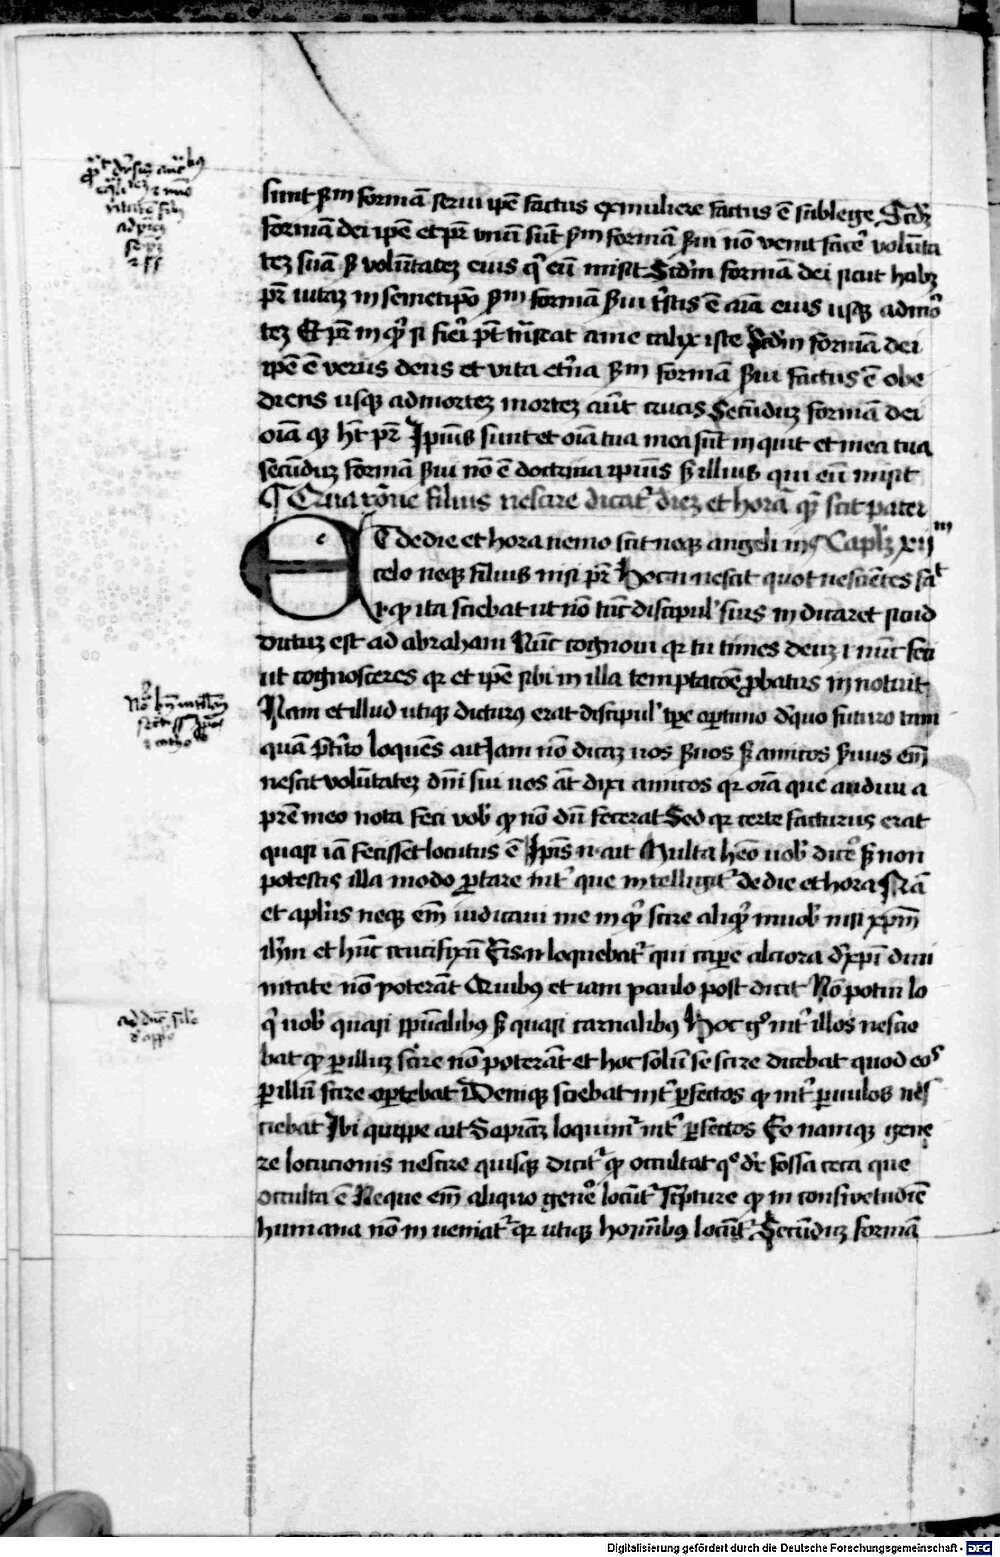 sunt ẜm formā serui ipē factus ex muliere factus ē sub lege Scđꝫ
formā dei ipē et pr̄ vnū sūt ẜm formā ẜui nō venit facē volūta
teꝫ suā ẜ volūtateꝫ eius q̄ eū misit Scđm formā dei sicut habꝫ
pr̄ uitaꝫ in semetip̄o ẜm formā ẜui t̄stis ē aīa eius usqꝫ ad mor
teꝫ Et pr̄ in qͥ si fieri pt̄ trāseat a me calix iste Scđm formā dei
ipē ē verus deus et vita etn̄a ẜm formā ẜui factus ē obe
diens usqꝫ ad morteꝫ morteꝫ aūt crucis Secūduꝫ formā dei
oīa qꝫ ht̄ pr̄ Ipīus sunt et oīa tua mea sūt inquit et mea tua
secūduꝫ formā ẜui nō ē doctrina ipīus ẜ illius qui eū misit
¶ Qua rōne filius nescire dicat᷑ dieꝫ et horā qᷓ scit pater
ET de die et hora nemo scit neqꝫ angeli in Caplꝫ xijᵐ
celo neqꝫ filius nisi pr̄ Hoc n̄ nescit quot nesciētes fac̄
i qꝫ ita sciebat ut nō tūc discipul᷑ suis indicaret sicud
dictuꝫ est ad abraham Nūc cognoui qꝛ tu times deuꝫ i nūc feci
ut cognosceres qꝛ et ipē sibi in illa temptacōe ꝓbatus innotuit
Nam et illud utiqꝫ dicturꝰ erat discipul᷑ tp̄e oportuno d̄ quo futuro tam
quā p̄t̄ito loquēs ait Iam nō dicaꝫ uos ẜuos ẜ amicos ẜuus em̄
nescit volūtateꝫ dn̄i sui uos āt dixi amicos qꝛ oīa que audiui a
prē meo nota feci vob᷑ qꝫ nō dū fecerat Sed qꝛ certe facturus erat
quasi iā fecisset locutus ē Ipīs n̄ ait Multa hēo uob᷑ dicē ẜ non
potestis illa modo portare int᷑ que intelligit᷑ de die et hora Nā
et aplus neqꝫ em̄ iudicaui me in qͥ scire aliqͥ in uob᷑ nisi xp̄m
ih̄m et hūc crucifixū Eis n̄ loquebat᷑ qui cape alciora d̄ xp̄i diui
nitate nō poterāt Quibus et iam paulo post dicit Nō potui lo
qͥ uob᷑ quasi spūalibus ẜ quasi carnalibus Hoc gͦ int᷑ illos nescie
bat qꝫ ꝑ illuꝫ scire nō poterāt et hoc solū se scire dicebat quod eos
ꝑ illū scire oportebat Deniqꝫ sciebat int᷑ ꝑfectos qꝫ int᷑ paruulos nes
ciebat Ibi quippe ait Sapiāꝫ loquimͬ int᷑ ꝑfectos Eo namqꝫ gene
re locucionis nescire quisqꝫ dicit᷑ qꝫ occultat qͦ dr̄ fossa ceca que
occulta ē Neque em̄ aliquo genē locūt᷑ scp̄ture qꝫ in consuetudīe
humana nō inueniat᷑ qꝛ utiqꝫ hominibꝰ locūt᷑ Secūduꝫ formā
Digitalisierung gefördert durch die Deutsche Forschungsgemeinschaft - DFG